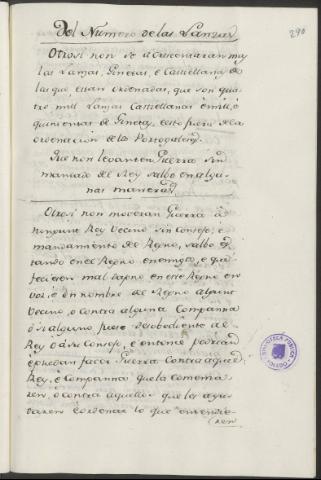 290
Del Numero de las Lanzas
Otrosi non se acrecentaran mas
las Lanzas, Ginetas, e Castellanas de
las que estan ordenadas, que son qua
tro mill Lanzas Castellanas e mill, e
quinientas de Ginetas, esto fuera de la
ordenacion de los Portogaleses
Que non levanten Guerra sin
mandado del Rey salbo en algu-
nas maneras
Otrosi non moveran Guerra à
ninguno Rey Vecino sin Consejo, e
mandamiento del Regno, salbo
tando en el Regno enemigos, e que
ficiesen mal dapno en este Regno en
voz, e en nombre de Regno alguno
Vecino, o contra alguna Compañia
ò si alguno fuere desobediente al
Rey ò à su Consejo, e entonce podran
e puedan facer Guerra contra aquel
Rey, e Compañia que la comenza
ren, o contra aquellos que les ayu
daren e ordenar lo que entendie-
ren
BIBLIOTECA PUBLICA
TOLEDO